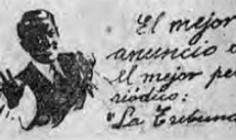 El mejor
anuncio e
el mejor pe
riódico:
"La Tribuna